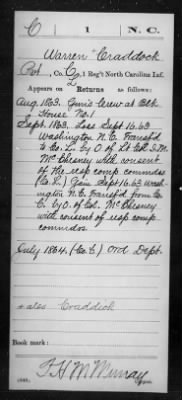 C | 1 | N.C.
Warren Craddock
Pvt., Co. C, 1 Reg't North Carolina Inf.
Appears on Returns as follows:
Aug. 1863. Guns Crew at Blk
House No. 1
Sept. 1863. Loss Sept. 16. 63
Washington N.C. Transf'd to
Co. L. by O of Lt Col. J.M.
McChesney with consent
of the resp comp. commdrs
(Co. L.) Gain Sept 16. 63 Wash-
ington N.C. Transf'd from Co.
C. by O. of Col. McChesney
with consent of resp comp
commdrs
July 1864. (Co. C.) Ord Dept.
Craddick
Book mark: